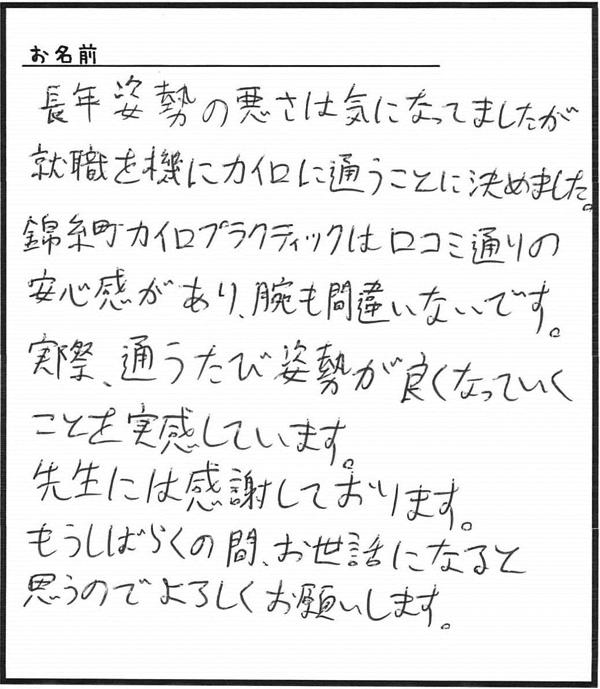 お名前
長年姿勢の悪さは気になってましたが
就職を機にカイロに通うことに決めました。
錦糸町カイロプラクティックは口コミ通りの
安心感があり、腕も間違いないです。
実際、通うたび姿勢が良くなっていく
ことを実感しています。
先生には感謝しております。
もうしばらくの間、お世話になると
思うのでよろしくお願いします。